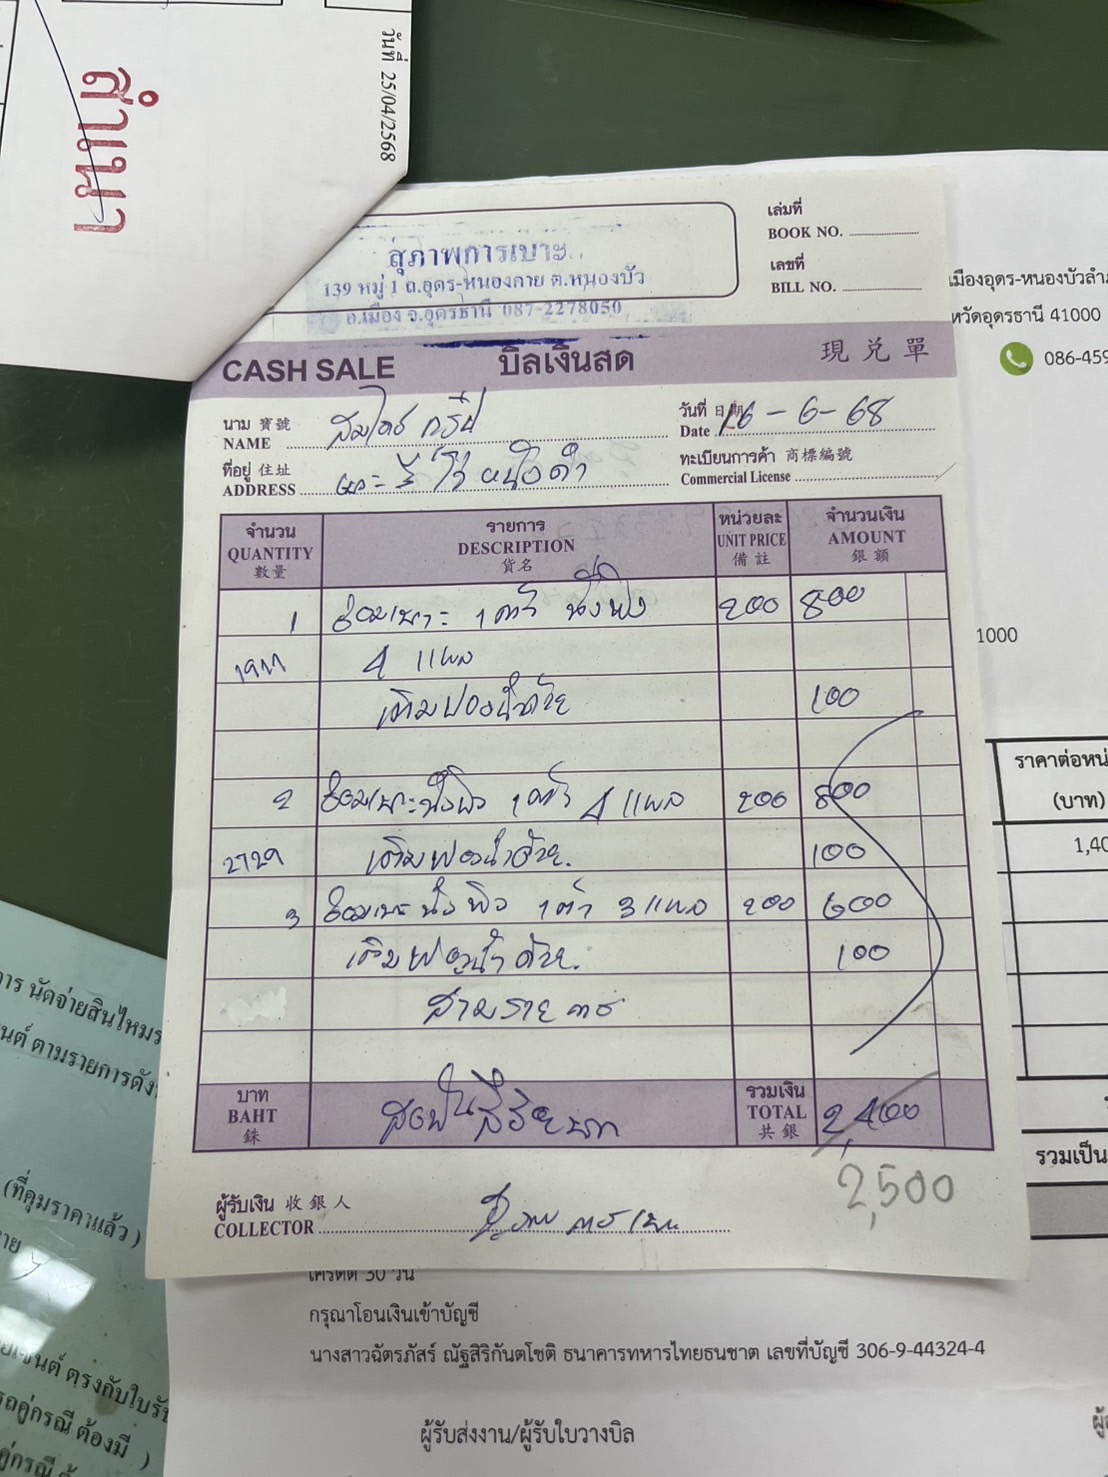 วันที่ 25/04/2568
สำเนา
สุภาพการเบาะ
139 หมู่ 1 ถ.อุดร-หนองกาย ต.หนองบัว
อ.เมือง จ.อุดรธานี 087-2278050
เล่มที่
BOOK NO.
เลขที่
BILL NO.
CASH SALE บิลเงินสด 現兌單
นาม 寶號
NAME
วันที่ 日期
Date 16-6-68
ที่อยู่ 住址
ADDRESS
ทะเบียนการค้า 商標編號
Commercial License
จำนวน รายการ หน่วยละ จำนวนเงิน
QUANTITY DESCRIPTION UNIT PRICE AMOUNT
數量 貨名 備註 銀額
1 ซ่อมเบาะ 1 ตัว 200 800
4 แผล
เติมฟองน้ำด้วย 100
2 ซ่อมเบาะ 1 ตัว 4 แผล 200 800
2729 เติมฟองน้ำด้วย. 100
3 ซ่อมเบาะ 1 ตัว 3 แผล 200 600
เติมฟองน้ำด้วย. 100
สามรายการ
บาท
BAHT
銖
สองพันสี่ร้อยบาท
รวมเงิน
TOTAL
共銀
2,400
2,500
ผู้รับเงิน 收銀人
COLLECTOR
เมืองอุดร-หนองบัวลำภ
หวัดอุดรธานี 41000
086-459
1000
ราคาต่อหน่
(บาท)
1,40
รวมเป็น
การ นัดจ่ายสินไหมร
นต์ ตามรายการดัง
(ที่คุมราคาแล้ว)
เครดิต 30 วัน
กรุณาโอนเงินเข้าบัญชี
นางสาวฉัตรภัสร์ ณัฐสิริกันตโชติ ธนาคารทหารไทยธนชาต เลขที่บัญชี 306-9-44324-4
ผู้รับส่งงาน/ผู้รับใบวางบิล
ตรงกับใบรับ
ถคู่กรณี ต้องมี )